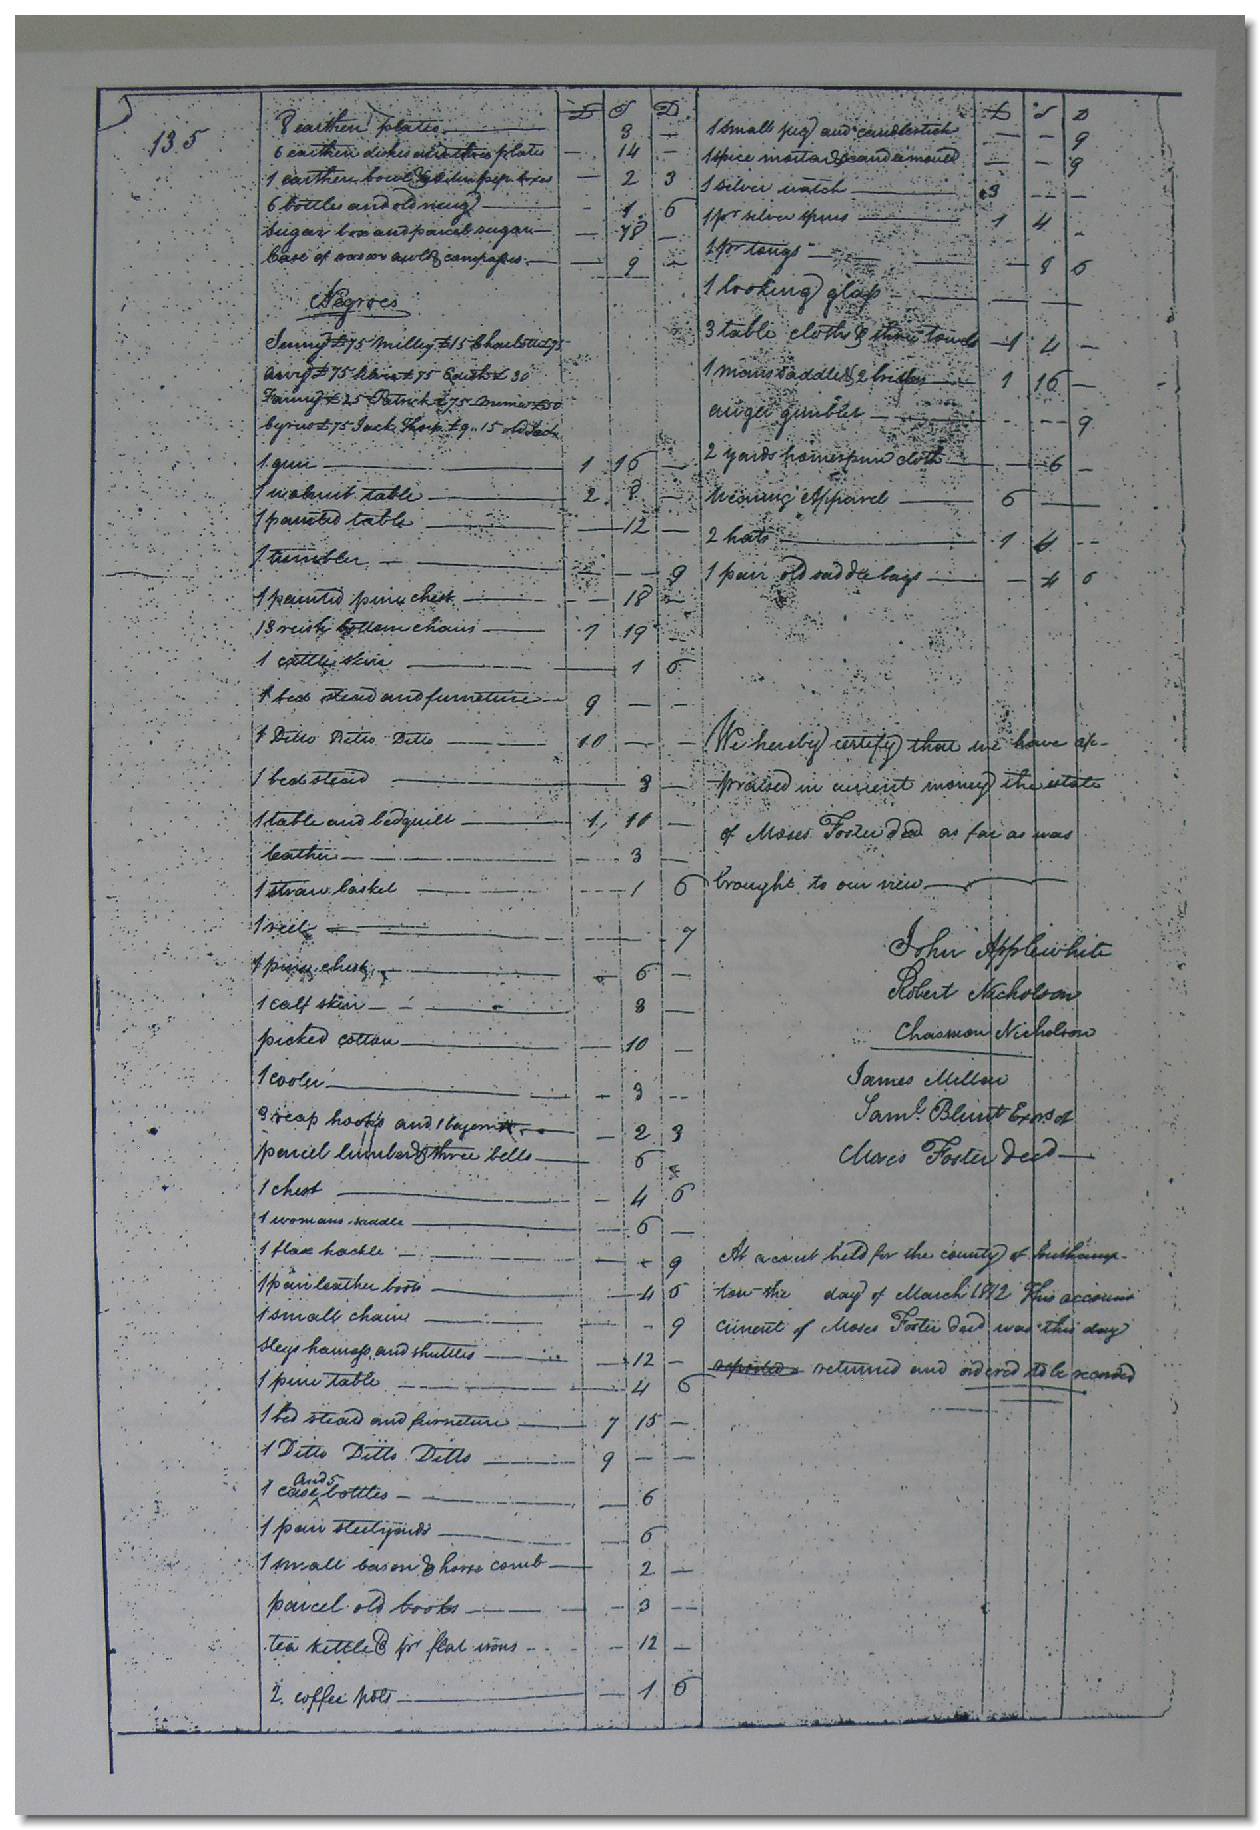 135
£ S D
8 earthen plates 3 –
6 earthen dishes and three plates – 14 –
1 earthen bowl & – 2 3
6 bottles and old mug – 1 6
Sugar box and parcel sugar – 18 –
Case of razor & compasses – 9 –
Negroes
Jenny £75 Milley £15 Charlotte £75
£75 £75 £30
Fanny £25 Patrick £75 £50
Cyrus £75 Jack £9..15 old
1 gun 1 16 –
1 walnut table 2 8 –
1 painted table – 12 –
1 tumbler – – 9
1 painted pine chest – 18 –
13 rush bottom chairs 1 19 –
1 cattle skin – 1 6
1 bed stead and furneture 9 – –
1 Ditto Ditto Ditto 10 – –
1 bedstead – 3 –
1 table and bedquilt 1 10 –
leather – 3 –
1 straw basket – 1 6
1 reel – – 7
1 pine chest – 6 –
1 calf skin – 3 –
picked cotton – 10 –
1 cooler – 3 –
3 reap hooks and 1 – 2 3
parcel lumber & three bells – 6
1 chest – 4 6
1 womans saddle – 6 –
1 flax hackle – – 9
1 pair leather boots – 4 6
1 small chair – – 9
Sleys harness and shuttles – 12 –
1 pine table – 4 6
1 bed stead and furneture 7 15 –
1 Ditto Ditto Ditto 9 – –
1 case and 5 bottles – 6
1 pair steelyards – 6
1 small bason & horse comb 2 –
parcel old books – 3 –
tea kettle & pr flat irons – 12 –
2 coffee pots – 1 6
£ S D
1 small and candlestick – – 9
1 spice mortar & candlemould – – 9
1 silver watch 3 – –
1 pr silver spurs 1 4 –
1 pr tongs – 6
1 looking glass – – –
3 table cloths & three towels 1 4 –
1 mans saddle & 2 bridles 1 16 –
auger gimblet – – 9
2 yards homespun cloth – 6 –
Wearing Apparel 6 – –
2 hats 1 4 –
1 pair old saddle bags – 4 6
We hereby certify that we have ap-
praised in current money the estate
of Moses Foster decd as far as was
brought to our view
John Applewhite
Robert Nicholson
Nicholson
James Millar
Saml. Blunt Exrs of
Moses Foster decd
At a court held for the county of Southamp-
ton the day of March 1812 This account
current of Moses Foster decd was this day
returned and ordered to be recorded